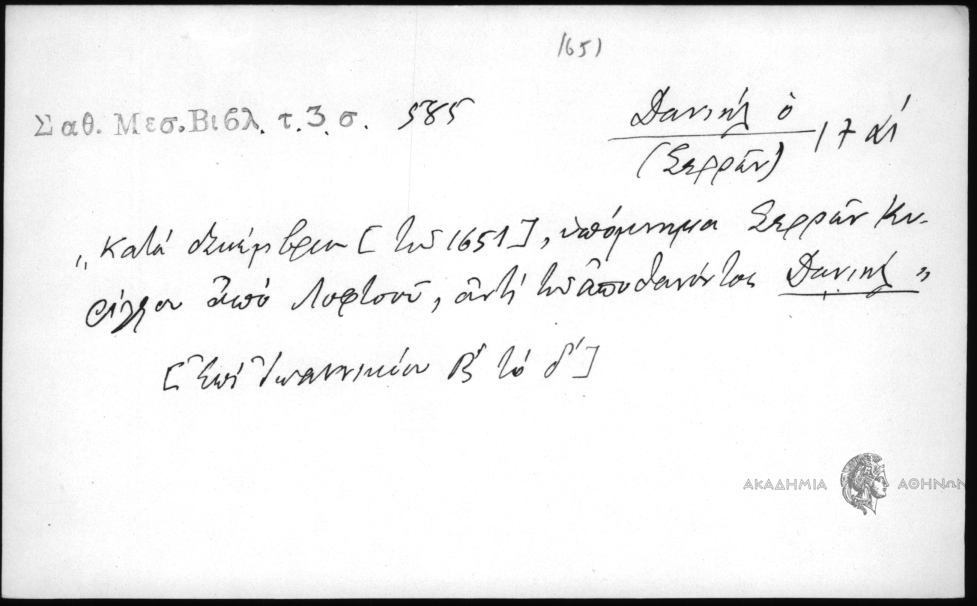 1651
Σαθ. Μεσ. Βιβλ. τ. 3. σ. 585
Δανιήλ ὁ
(Σερρῶν) 17 αἰ
„Κατά δεκέμβριον [τοῦ 1651], ὑπόμνημα Σερρῶν Κυ-
ρίλλου ἀπό Λοφτσοῦ, ἀντί τοῦ ἀποθανόντος Δανιήλ"
[Ἐπί Ἰωαννικίου Β΄ τό δ΄]
ΑΚΑΔΗΜΙΑ ΑΘΗΝΩΝ